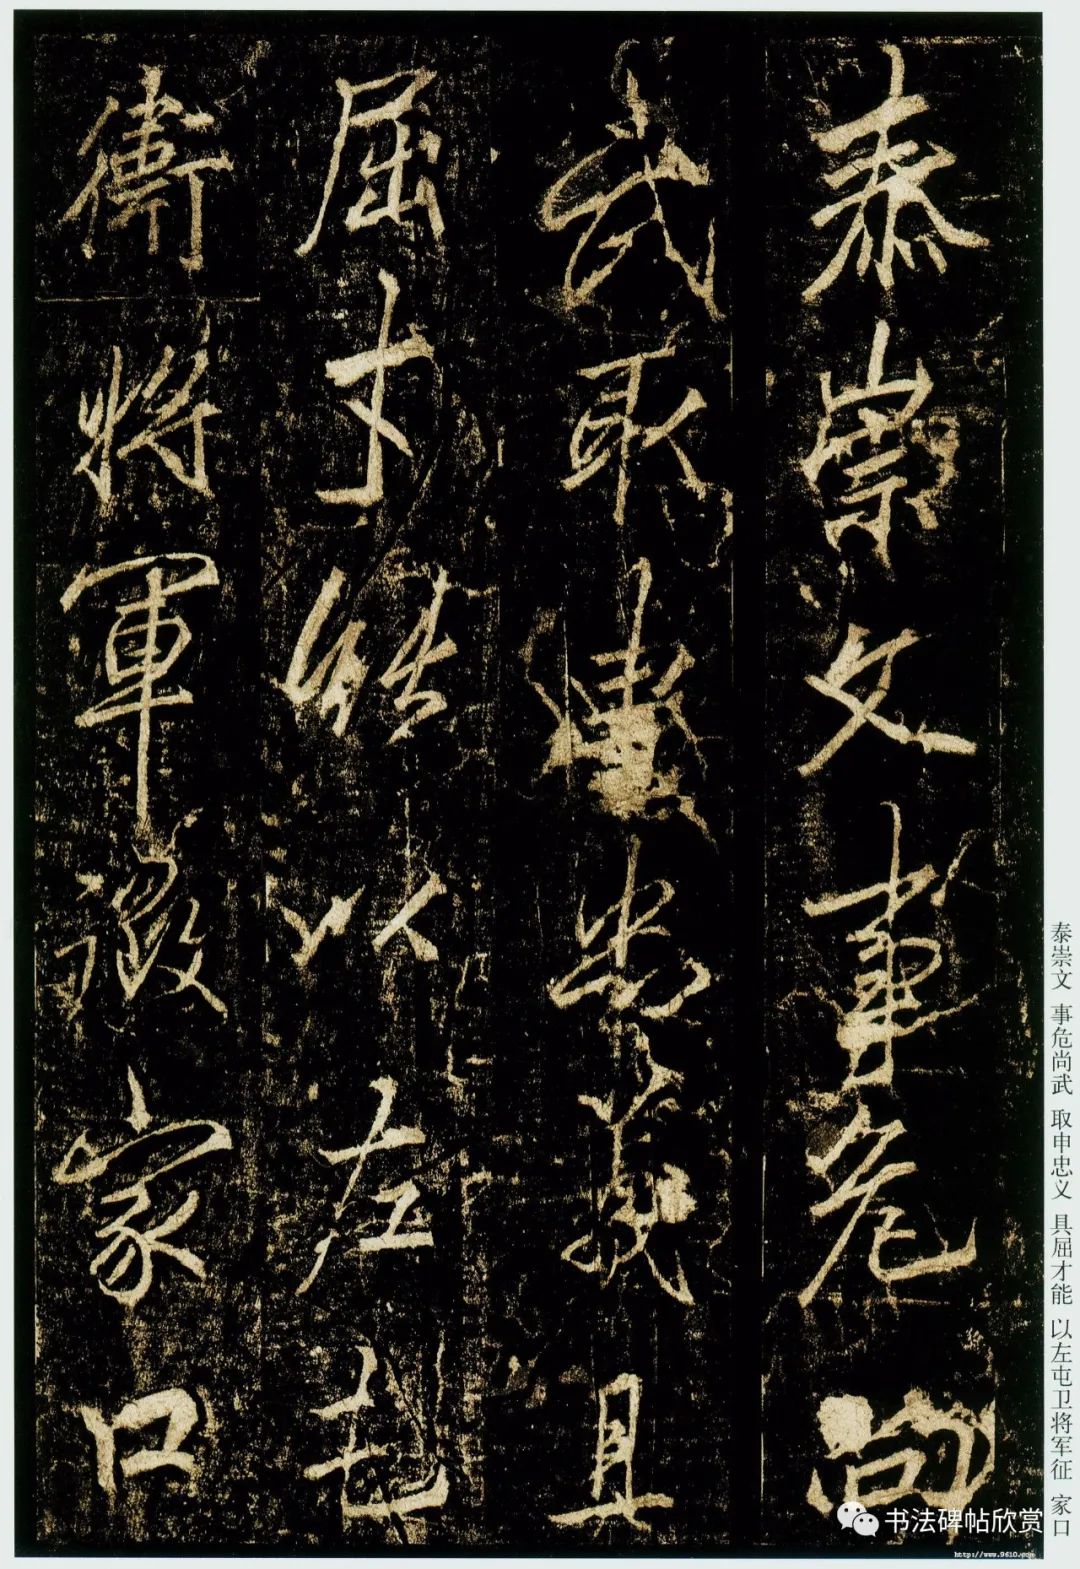 泰崇文事危尚
武取申忠義具
屈才能以左屯
衛將軍徵家口
泰崇文 事危尚武 取申忠义 具屈才能 以左屯卫将军征 家口
书法碑帖欣赏
http://www.9610.com